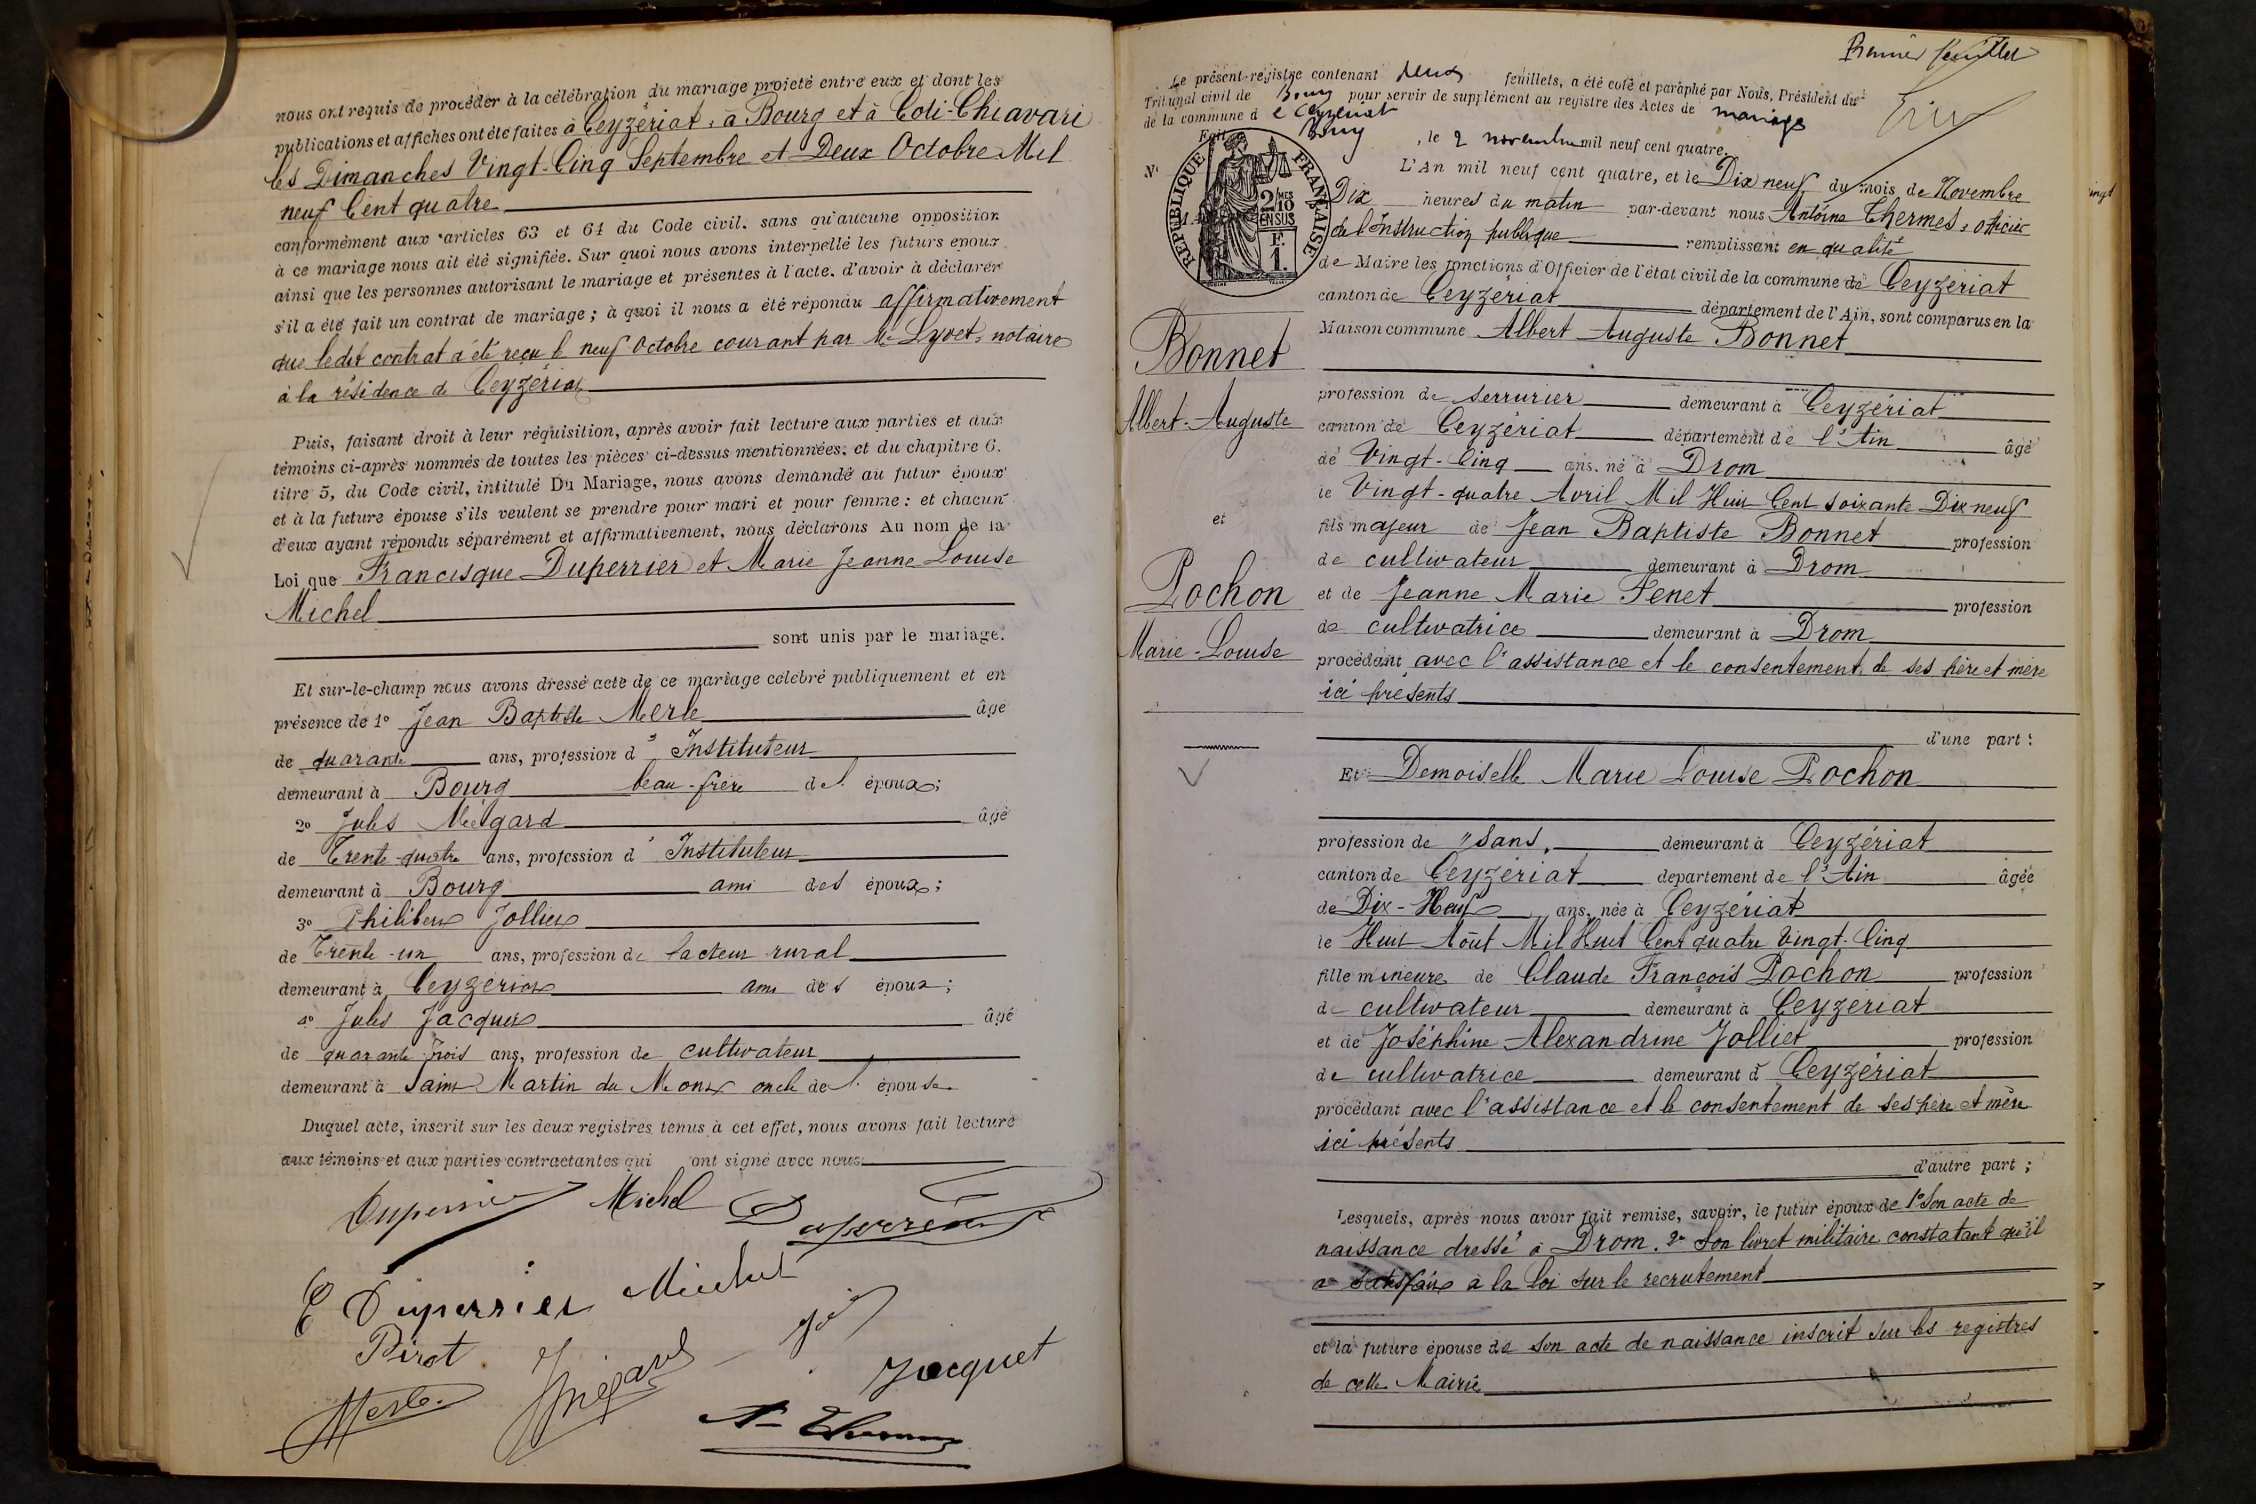 nous ont requis de procéder à la célébration du mariage projeté entre eux et dont les
publications et affiches ont été faites à Ceyzériat, à Bourg et à Coti-Chiavari
les Dimanches Vingt-Cinq Septembre et Deux Octobre Mil
neuf Cent quatre
conformément aux articles 63 et 64 du Code civil, sans qu'aucune opposition
à ce mariage nous ait été signifiée. Sur quoi nous avons interpellé les futurs époux
ainsi que les personnes autorisant le mariage et présentes à l'acte, d'avoir à déclarer
s'il a été fait un contrat de mariage; à quoi il nous a été répondu affirmativement
que ledit contrat a été reçu le neuf Octobre courant par Me Lyvet, notaire
à la résidence de Ceyzériat
Puis, faisant droit à leur réquisition, après avoir fait lecture aux parties et aux
témoins ci-après nommés de toutes les pièces ci-dessus mentionnées, et du chapitre 6,
titre 5, du Code civil, intitulé Du Mariage, nous avons demandé au futur époux
et à la future épouse s'ils veulent se prendre pour mari et pour femme: et chacun
d'eux ayant répondu séparément et affirmativement, nous déclarons Au nom de la
Loi que Francisque Duperrier et Marie Jeanne Louise
Michel
sont unis par le mariage.
Et sur-le-champ nous avons dressé acte de ce mariage célébré publiquement et en
présence de 1° Jean Baptiste Merle âgé
de quarante ans, profession d'Instituteur
demeurant à Bourg beau-frère de l. époux;
2° Jules Mégard âgé
de Trente-quatre ans, profession d'Instituteur
demeurant à Bourg ami des époux;
3° Philibert Jolliet
de Trente-un ans, profession de facteur rural
demeurant à Ceyzériat ami des époux;
4° Jules Jacquet âgé
de quarante trois ans, profession de cultivateur
demeurant à Saint Martin du Mont oncle de l. épouse
Duquel acte, inscrit sur les deux registres tenus à cet effet, nous avons fait lecture
aux témoins et aux parties contractantes qui ont signé avec nous.
Duperrier Michel Duperrier
E Duperrier Michel
Pirot
Jacquet
Merle. J Mégard
A. Thermes
Premier feuillet
Le présent registre contenant deux feuillets, a été coté et paraphé par Nous, Président du
Tribunal civil de Bourg pour servir de supplément au registre des Actes de mariage
de la commune d e Ceyzériat
Fait Bourg, le 2 novembre mil neuf cent quatre.
N°
RÉPUBLIQUE FRANÇAISE
2/10 MES
EN SUS
F. 1.
L'An mil neuf cent quatre, et le Dix neuf du mois de Novembre
Dix heures du matin par-devant nous Antoine Thermes, officier
de l'Instruction publique remplissant en qualité
de Maire les fonctions d'Officier de l'état civil de la commune de Ceyzériat
canton de Ceyzériat département de l'Ain, sont comparus en la
Maison commune Albert Auguste Bonnet
Bonnet
Albert-Auguste
et
Pochon
Marie-Louise
profession de serrurier demeurant à Ceyzériat
canton de Ceyzériat département de l'Ain âgé
de Vingt-Cinq ans, né à Drom
le Vingt-quatre Avril Mil Huit Cent soixante Dix neuf
fils majeur de Jean Baptiste Bonnet profession
de cultivateur demeurant à Drom
et de Jeanne Marie Fenet profession
de cultivatrice demeurant à Drom
procédant avec l'assistance et le consentement de ses père et mère
ici présents
d'une part:
Et Demoiselle Marie Louise Pochon
profession de "Sans" demeurant à Ceyzériat
canton de Ceyzériat département de l'Ain âgée
de Dix-Neuf ans, née à Ceyzériat
le Huit Août Mil Huit Cent quatre Vingt-Cinq
fille mineure de Claude François Pochon profession
de cultivateur demeurant à Ceyzeriat
et de Joséphine Alexandrine Jolliet profession
de cultivatrice demeurant à Ceyzériat
procédant avec l'assistance et le consentement de ses père et mère
ici présents
d'autre part;
Lesquels, après nous avoir fait remise, savoir, le futur époux de 1° Son acte de
naissance dressé à Drom. 2° Son livret militaire constatant qu'il
a satisfait à la loi sur le recrutement
et la future épouse de son acte de naissance inscrit sur les registres
de cette Mairie